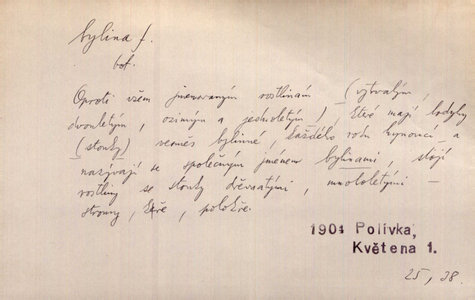 bylina f.
bot.
Oproti všem jmenovaným rostlinám (vytrvalým,
dvouletým, ozimým a jednoletým), které mají lodyhy
(stonky) vesměs bylinné, každého roku hynoucí a
nazývají se společným jménem bylinami, stojí
rostliny se stonky dřevnatými, mnoholetými –
stromy, keře, polokře.
1901 Polívka,
Květena 1.
25, 38